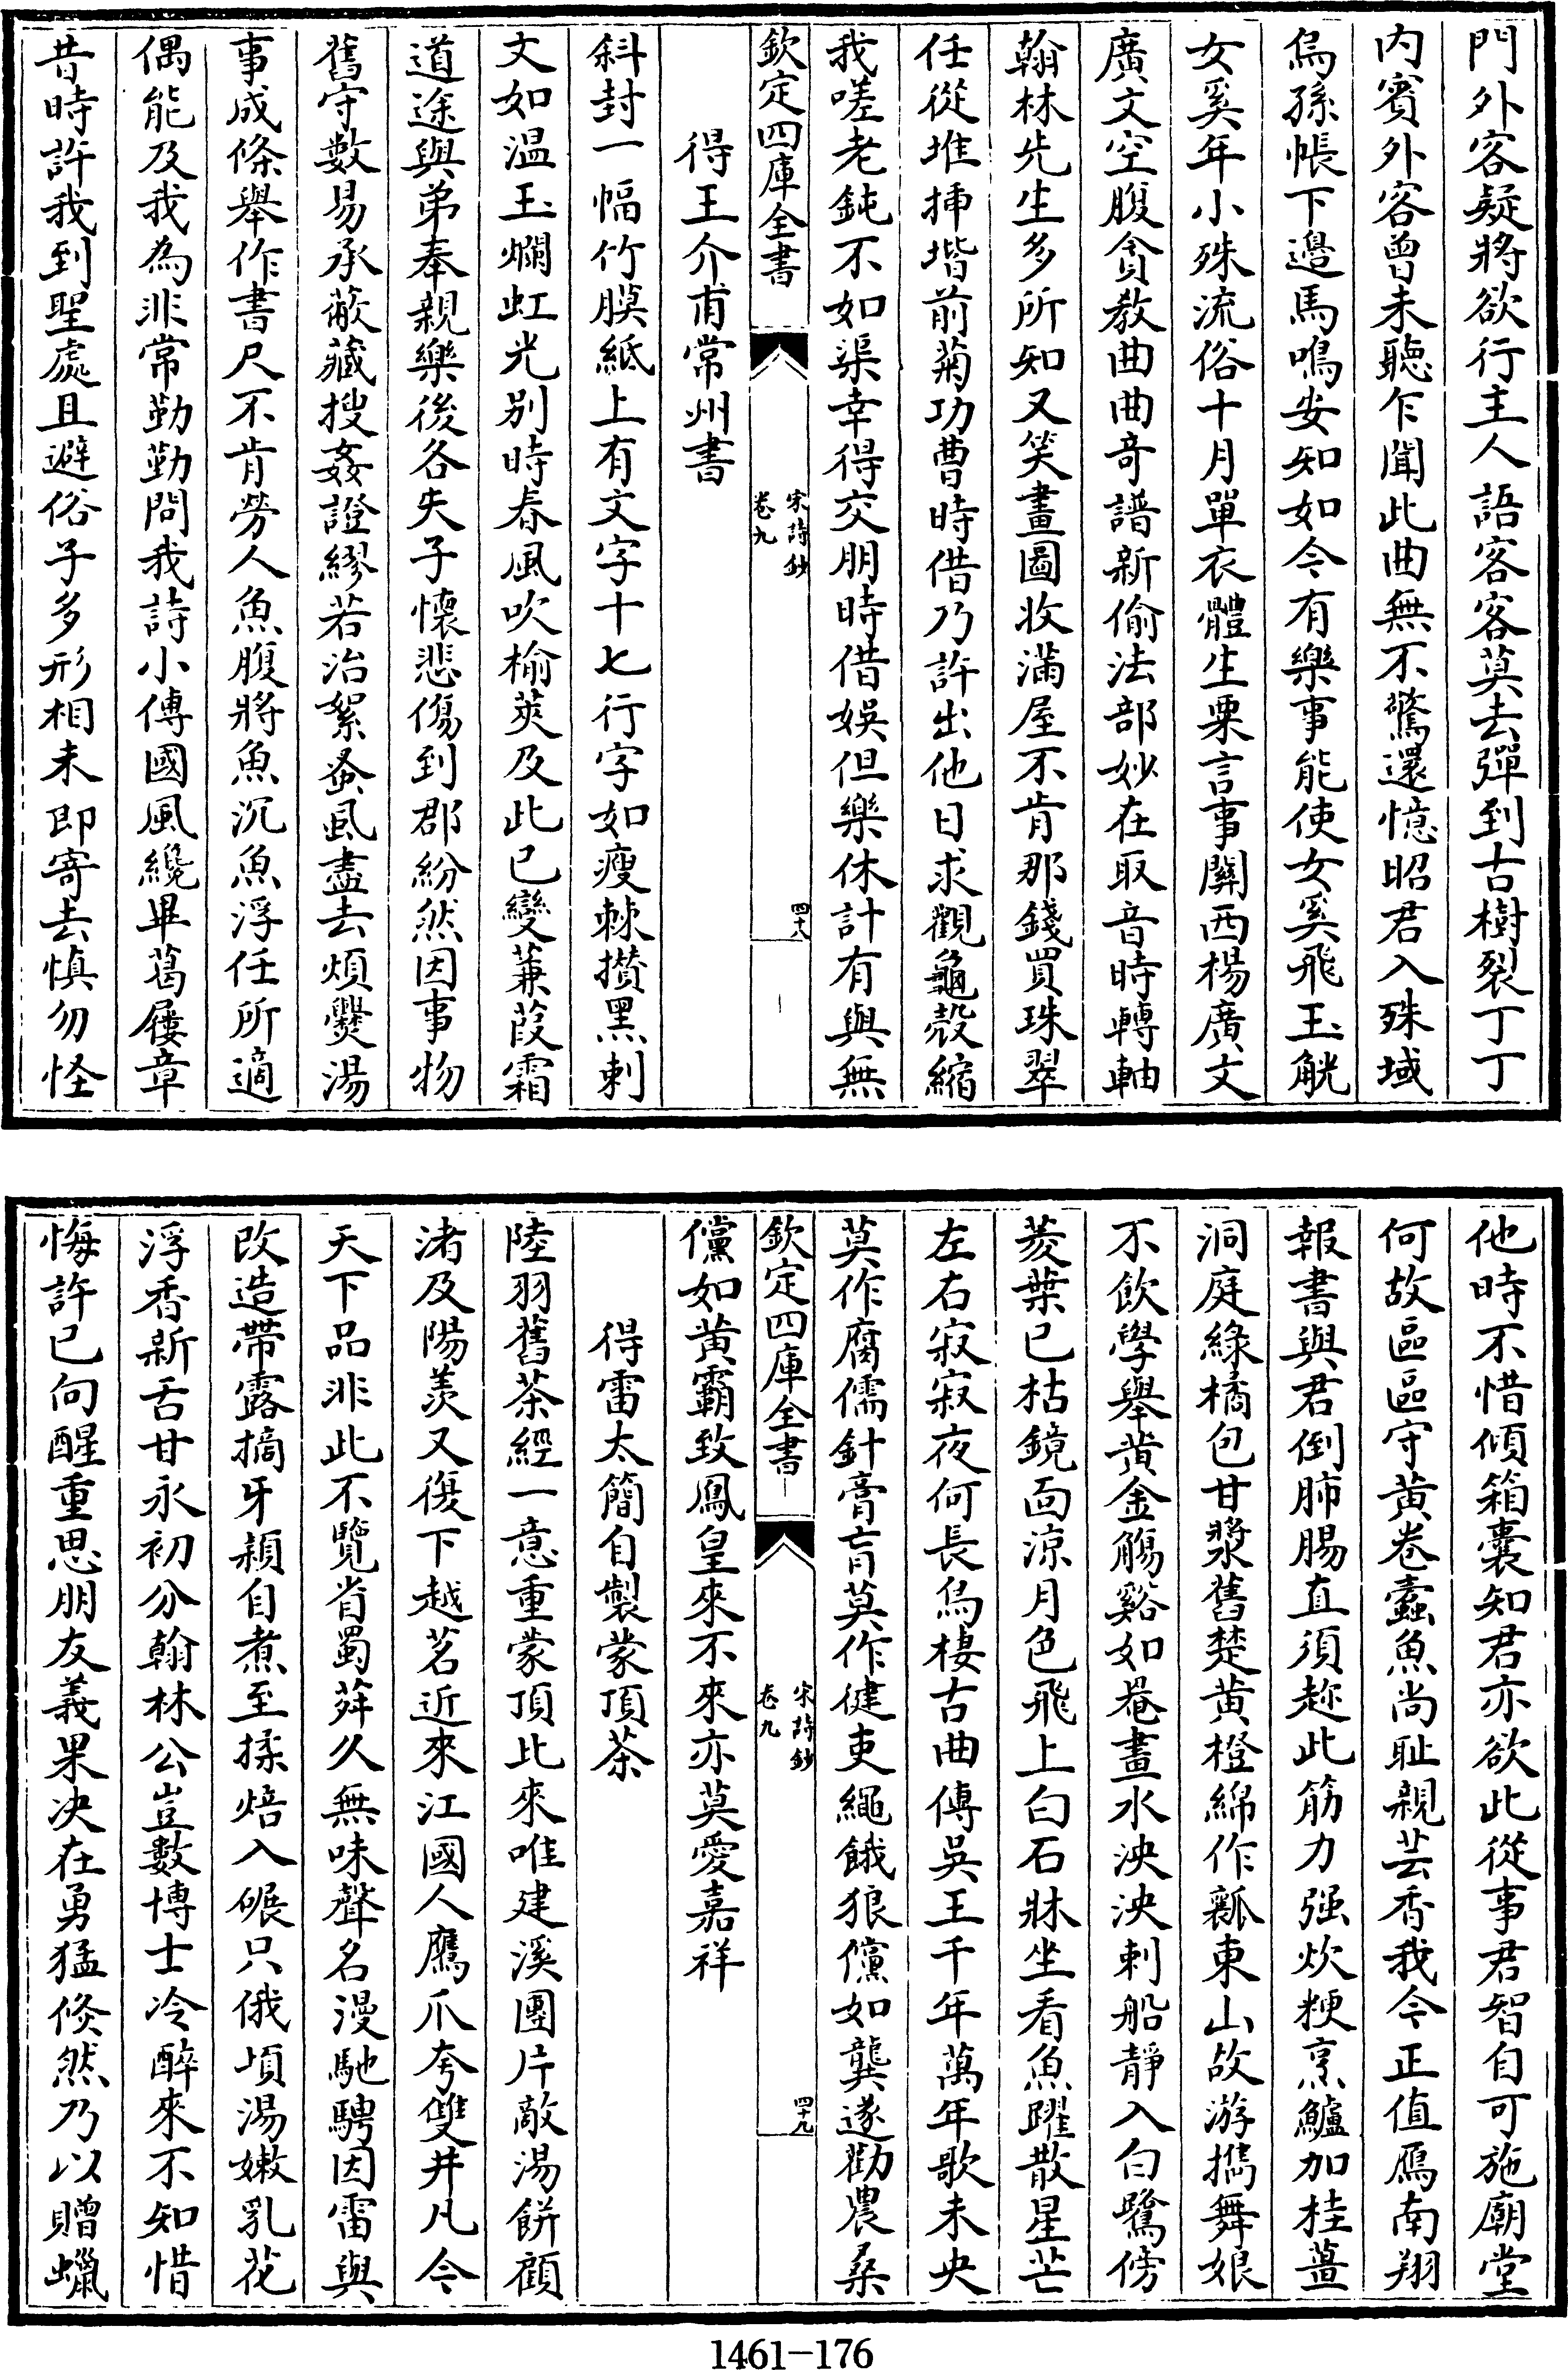 門外客疑將欲行主人語客客莫去彈到古樹裂丁丁
内賓外客曾未聽乍聞此曲無不驚還憶昭君入殊域
烏孫帳下邉馬鳴安知如今有樂事能使女奚飛玉觥
女奚年小殊流俗十月單衣體生粟言事關西楊廣文
廣文空腹貪教曲曲奇譜新偷法部妙在取音時轉軸
翰林先生多所知又笑畫圖收滿屋不肯那錢買珠翠
任從堆揷堦前菊功曹時借乃許出他日求觀龜殻縮
我嗟老鈍不如渠幸得交朋時借娛但樂休計有與無
欽定四庫全書
宋詩鈔
卷九
四十八
得王介甫常州書
斜封一幅竹膜紙上有文字十七行字如瘦棘攢黑刺
文如温玉爛虹光别時春風吹榆莢及此已變蒹葭霜
道途與弟奉親樂後各失子懷悲傷到郡紛然因事物
舊守數易承蔽藏搜姦證繆若治絮蚤虱盡去煩爨湯
事成條舉作書尺不肯勞人魚腹將魚沉魚浮任所適
偶能及我為非常勤勤問我詩小傳國風纔畢葛屨章
昔時許我到聖處且避俗子多形相未即寄去慎勿怪
他時不惜傾箱囊知君亦欲此從事君智自可施廟堂
何故區區守黄卷蠧魚尚耻親芸香我今正值鴈南翔
報書與君倒肺腸直須趂此筋力强炊粳烹鱸加桂薑
洞庭綠橘包甘漿舊楚黄橙綿作瓤東山故游攜舞娘
不飲學舉黄金觴谿如罨畫水泱泱刺船靜入白鷺傍
菱葉已枯鏡靣涼月色飛上白石牀坐看魚躍散星芒
左右寂寂夜何長烏棲古曲傳吳王千年萬年歌未央
莫作腐儒針膏肓莫作健吏繩餓狼儻如龔遂勸農桑
欽定四庫全書
宋詩鈔
卷九
四十九
儻如黄霸致鳳皇來不來亦莫愛嘉祥
得雷太簡自製蒙頂茶
陸羽舊茶經一意重蒙頂比來唯建溪團片敵湯餅顧
渚及陽羨又復下越茗近來江國人鷹爪夸雙井凡今
天下品非此不覽省蜀荈久無味聲名漫馳騁因雷與
改造帶露摘牙穎自煮至揉焙入碾只俄頃湯嫩乳花
浮香新舌甘永初分翰林公豈數博士冷醉來不知惜
悔許已向醒重思朋友義果决在勇猛倐然乃以贈蠟
1461-176